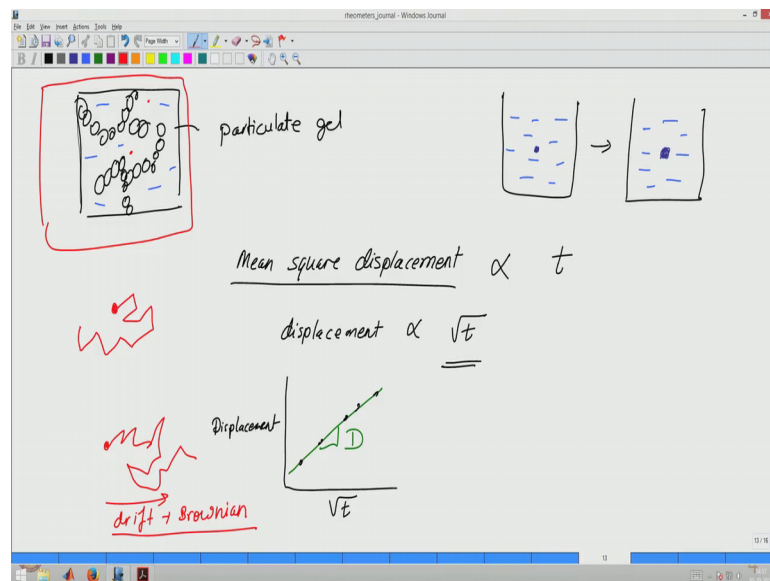 rheometers_journal - Windows Journal
File Edit View Insert Actions Tools Help
Page Width
B I
particulate gel
Mean square displacement ∝ t
displacement ∝ √t
Displacement
D
√t
drift + Brownian
13 / 16
13